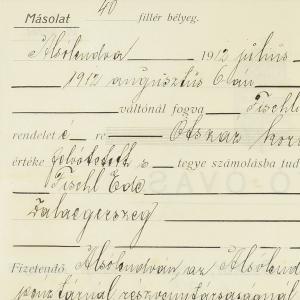 Másolat 40 fillér bélyeg.
Alsólendva 1912 július
1912 augusztus 6 án
váltónál fogva Fischl
rendelet é re Ötszáz kor
értéke felvétetett s tegye számolásba tud
Fischl Ede
Zalaegerszeg
Fizetendő Alsólendván, az Alsólend
pénztárnál részvénytársaságnál